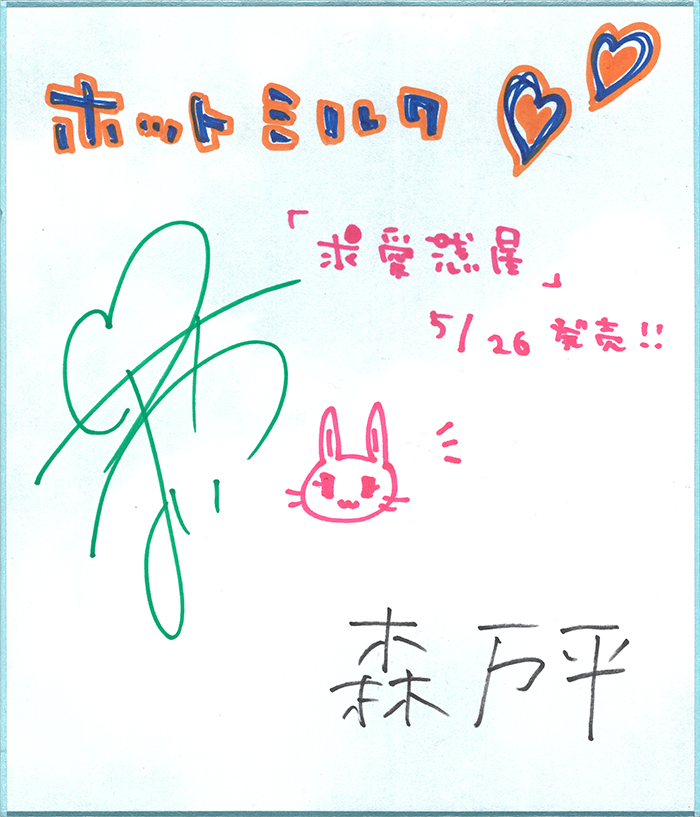 ホットミルク
「求愛惑星」
5/26 発売!!
森万平